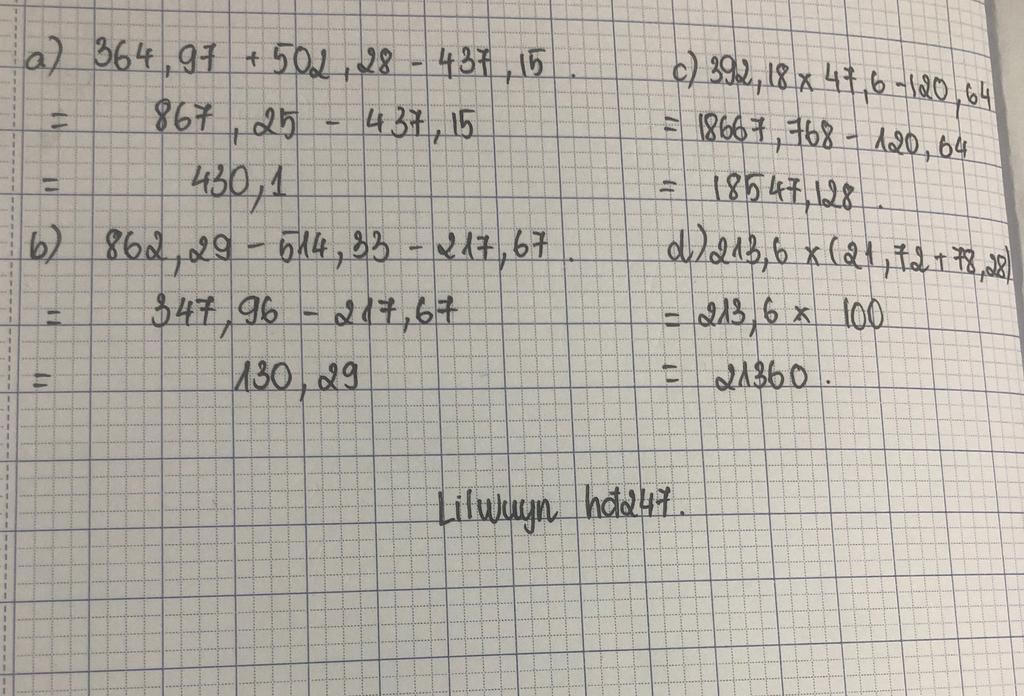 a) 364,97 + 502,28 - 437,15.
= 867,25 - 437,15
= 430,1
b) 862,29 - 514,33 - 217,67.
= 347,96 - 217,67
= 130,29
c) 392,18 x 47,6 - 120,64
= 18667,768 - 120,64
= 18547,128.
d) 213,6 x (21,72 + 78,28)
= 213,6 x 100
= 21360.
Lilwuyn hđ247.